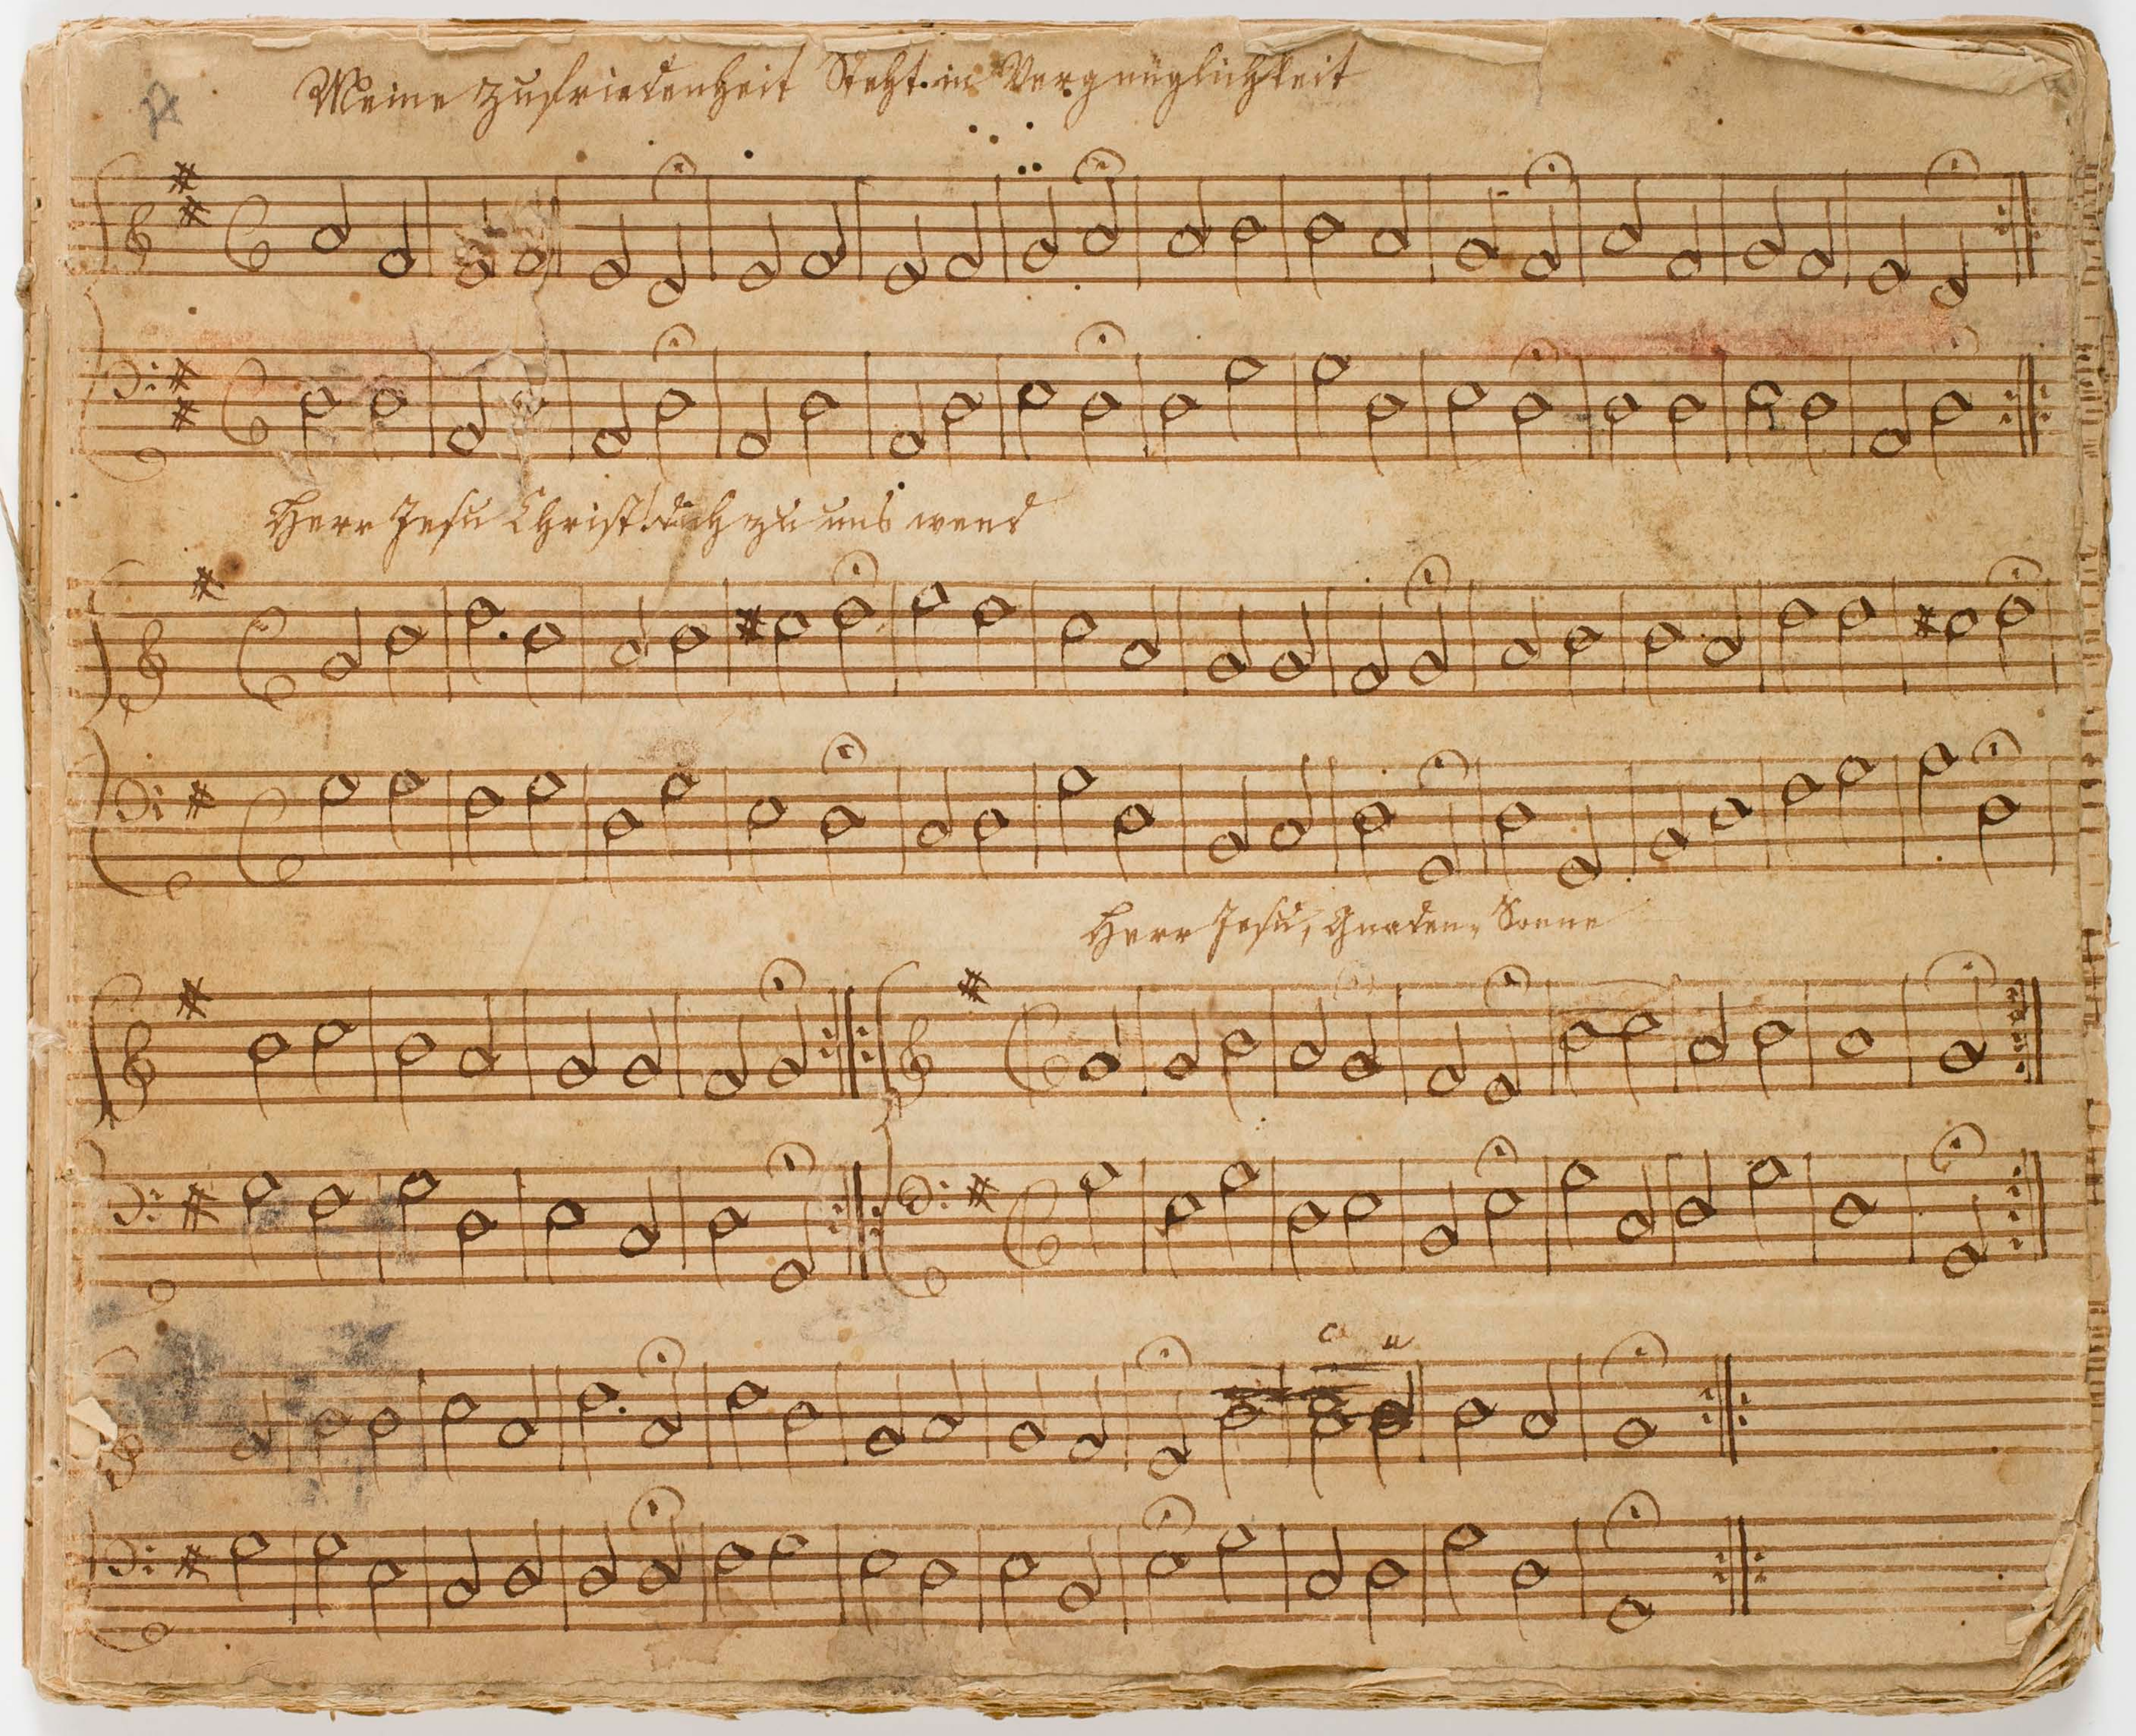 Meine Zufriedenheit Steht in Vergnüglichkeit
Herr Jesu Christ! dich zu uns wend
Herr Jesu, Gnaden, Sonne